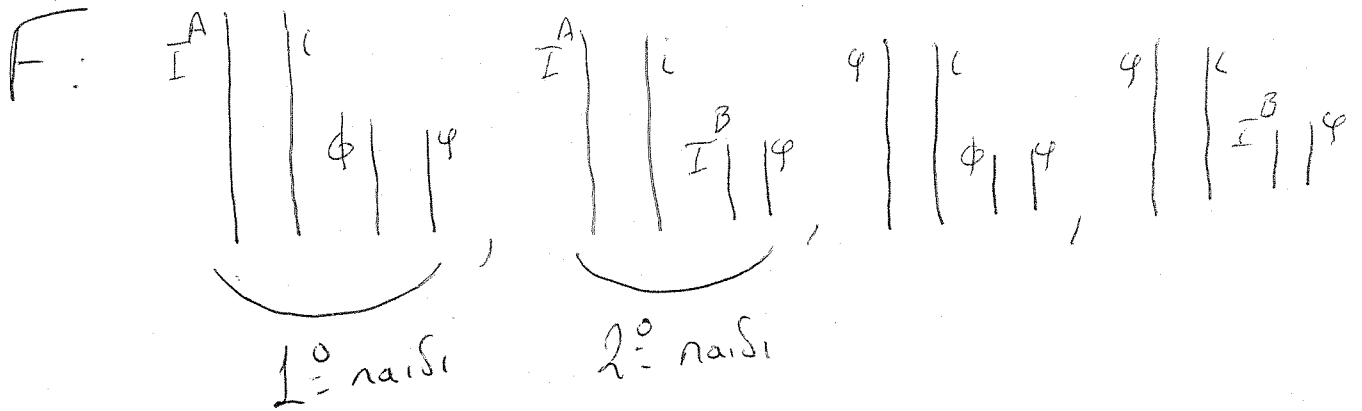 F: I^A || i ϕ || φ, I^A || i I^B || φ, φ || i ϕ || φ, φ || i I^B || φ
1º παιδι 2º παιδι